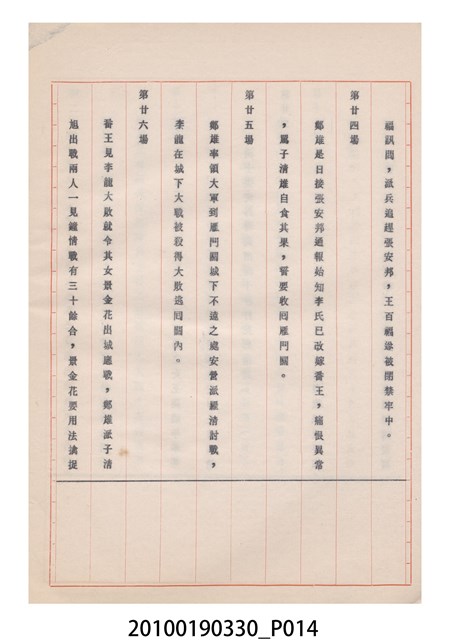 福訊問，派兵追趕張安邦，王百福綠被閉禁牢中。
第廿四場
鄭雄是日接張安邦通報始知李氏已改嫁番王，痛恨異常
，罵子清雄自食其果，誓要收囘雁門關。
第廿五場
鄭雄率領大軍到雁門關城下不遠之處安營派羅清討戰，
李龍在城下大戰被殺得大敗逃囘關內。
第廿六場
番王見李龍大敗就令其女景金花出城應戰，鄭雄派子清
旭出戰兩人一見鍾情戰有三十餘合，景金花要用法擒捉
20100190330_P014